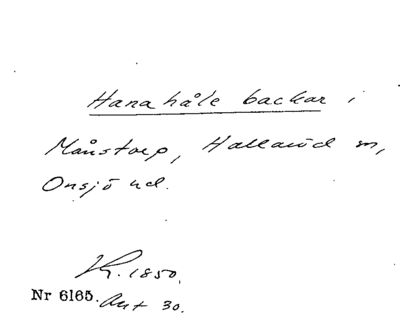 Hanahåle backar i
Månstorp, Hallaröd m,
Onsjö hd.
1850.
Nr 6165. Ant 30.